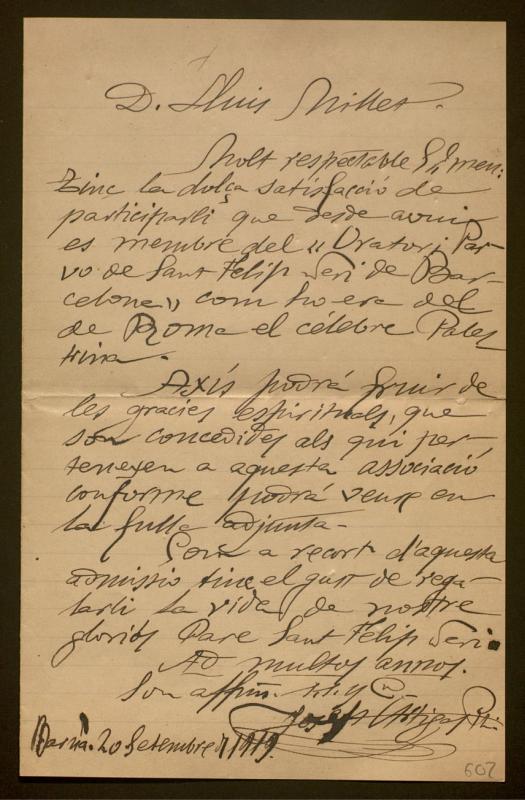 D. Lluis Millet.
Molt respectable
Tinc la dolça satisfacció de
participarli que desde avui
es membre del «Oratori Par-
vo de Sant Felip Neri de Bar-
celona» com ho era del
de Roma el célebre Pales
trina.
Axís podrá fruir de
les gracies espirituals, que
son concedides als qui per-
tenexen a aquesta associació
conforme podrá veure en
la fulla adjunta.
Com a recort d'aquesta
admissio tinc el gust de rega-
larli la vida de nostre
gloriós Pare Sant Felip Neri.
Ad multos annos.
Son affm.
Joseph Artigas Pbr.
Barna. 20 Setembre 1919.
607